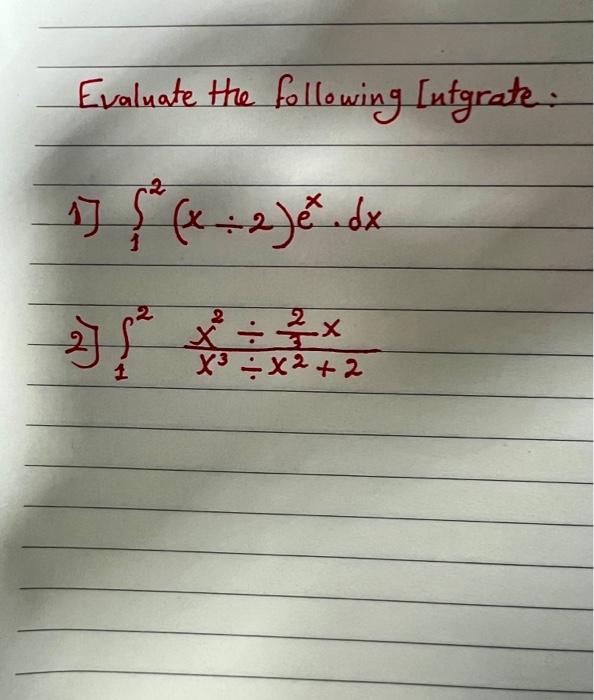 Evaluate the following Intgrate :
1] ∫₁² (x ÷ 2) eˣ . dx
2] ∫₁² (x² ÷ 2/3 x) / (x³ ÷ x² + 2)